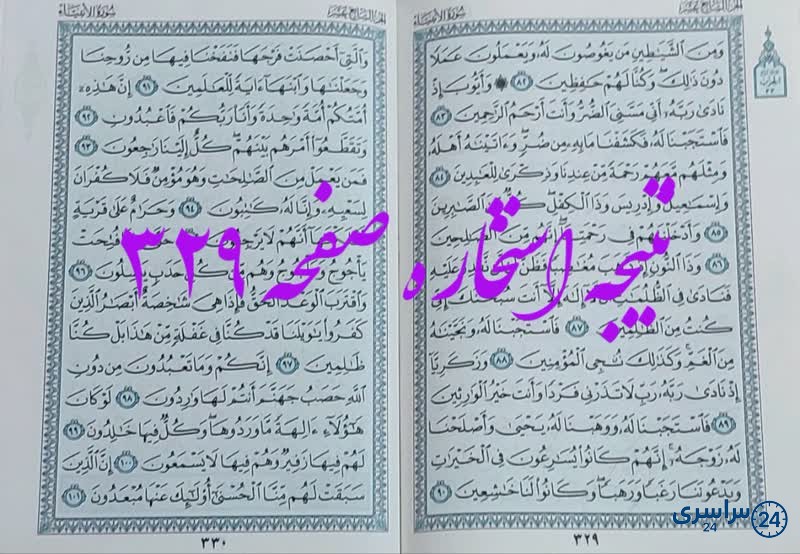 سُورَةُ الأَنبِيَاءِ
وَمِنَ الشَّيَٰطِينِ مَن يَغُوصُونَ لَهُۥ وَيَعْمَلُونَ عَمَلًا
دُونَ ذَٰلِكَ ۖ وَكُنَّا لَهُمْ حَٰفِظِينَ ٨٢ ۞ وَأَيُّوبَ إِذْ
نَادَىٰ رَبَّهُۥٓ أَنِّى مَسَّنِىَ الضُّرُّ وَأَنتَ أَرْحَمُ الرَّٰحِمِينَ ٨٣
فَاسْتَجَبْنَا لَهُۥ فَكَشَفْنَا مَا بِهِۦ مِن ضُرٍّ ۖ وَءَاتَيْنَٰهُ أَهْلَهُۥ
وَمِثْلَهُم مَّعَهُمْ رَحْمَةً مِّنْ عِندِنَا وَذِكْرَىٰ لِلْعَٰبِدِينَ ٨٤
وَإِسْمَٰعِيلَ وَإِدْرِيسَ وَذَا الْكِفْلِ ۖ كُلٌّ مِّنَ الصَّٰبِرِينَ
٨٥ وَأَدْخَلْنَٰهُمْ فِى رَحْمَتِنَآ ۖ إِنَّهُم مِّنَ الصَّٰلِحِينَ
٨٦ وَذَا النُّونِ إِذ ذَّهَبَ مُغَٰضِبًا فَظَنَّ أَن لَّن نَّقْدِرَ عَلَيْهِ
فَنَادَىٰ فِى الظُّلُمَٰتِ أَن لَّآ إِلَٰهَ إِلَّآ أَنتَ سُبْحَٰنَكَ إِنِّى
كُنتُ مِنَ الظَّٰلِمِينَ ٨٧ فَاسْتَجَبْنَا لَهُۥ وَنَجَّيْنَٰهُ
مِنَ الْغَمِّ ۚ وَكَذَٰلِكَ نُۨجِى الْمُؤْمِنِينَ ٨٨ وَزَكَرِيَّآ
إِذْ نَادَىٰ رَبَّهُۥ رَبِّ لَا تَذَرْنِى فَرْدًا وَأَنتَ خَيْرُ الْوَٰرِثِينَ
٨٩ فَاسْتَجَبْنَا لَهُۥ وَوَهَبْنَا لَهُۥ يَحْيَىٰ وَأَصْلَحْنَا
لَهُۥ زَوْجَهُۥٓ ۚ إِنَّهُمْ كَانُوا۟ يُسَٰرِعُونَ فِى الْخَيْرَٰتِ
وَيَدْعُونَنَا رَغَبًا وَرَهَبًا ۖ وَكَانُوا۟ لَنَا خَٰشِعِينَ ٩٠
٣٢٩
سُورَةُ الأَنبِيَاءِ
وَالَّتِىٓ أَحْصَنَتْ فَرْجَهَا فَنَفَخْنَا فِيهَا مِن رُّوحِنَا
وَجَعَلْنَٰهَا وَابْنَهَآ ءَايَةً لِّلْعَٰلَمِينَ ٩١ إِنَّ هَٰذِهِۦٓ
أُمَّتُكُمْ أُمَّةً وَٰحِدَةً وَأَنَا۠ رَبُّكُمْ فَاعْبُدُونِ ٩٢
وَتَقَطَّعُوٓا۟ أَمْرَهُم بَيْنَهُمْ ۖ كُلٌّ إِلَيْنَا رَٰجِعُونَ ٩٣
فَمَن يَعْمَلْ مِنَ الصَّٰلِحَٰتِ وَهُوَ مُؤْمِنٌ فَلَا كُفْرَانَ
لِسَعْيِهِۦ وَإِنَّا لَهُۥ كَٰتِبُونَ ٩٤ وَحَرَٰمٌ عَلَىٰ قَرْيَةٍ
أَنَّهُمْ لَا يَرْجِعُونَ فُتِحَتْ
يَأْجُوجُ وَمَأْجُوجُ وَهُم مِّن كُلِّ حَدَبٍ يَنسِلُونَ ٩٦
وَاقْتَرَبَ الْوَعْدُ الْحَقُّ فَإِذَا هِىَ شَٰخِصَةٌ أَبْصَٰرُ الَّذِينَ
كَفَرُوا۟ يَٰوَيْلَنَا قَدْ كُنَّا فِى غَفْلَةٍ مِّنْ هَٰذَا بَلْ كُنَّا
ظَٰلِمِينَ ٩٧ إِنَّكُمْ وَمَا تَعْبُدُونَ مِن دُونِ
اللَّهِ حَصَبُ جَهَنَّمَ أَنتُمْ لَهَا وَٰرِدُونَ ٩٨ لَوْ كَانَ
هَٰٓؤُلَآءِ ءَالِهَةً مَّا وَرَدُوهَا ۖ وَكُلٌّ فِيهَا خَٰلِدُونَ ٩٩
لَهُمْ فِيهَا زَفِيرٌ وَهُمْ فِيهَا لَا يَسْمَعُونَ ١٠٠ إِنَّ الَّذِينَ
سَبَقَتْ لَهُم مِّنَّا الْحُسْنَىٰٓ أُو۟لَٰٓئِكَ عَنْهَا مُبْعَدُونَ ١٠١
٣٣٠
نتیجه استخاره صفحه ۳۲۹
سراسری 24
24